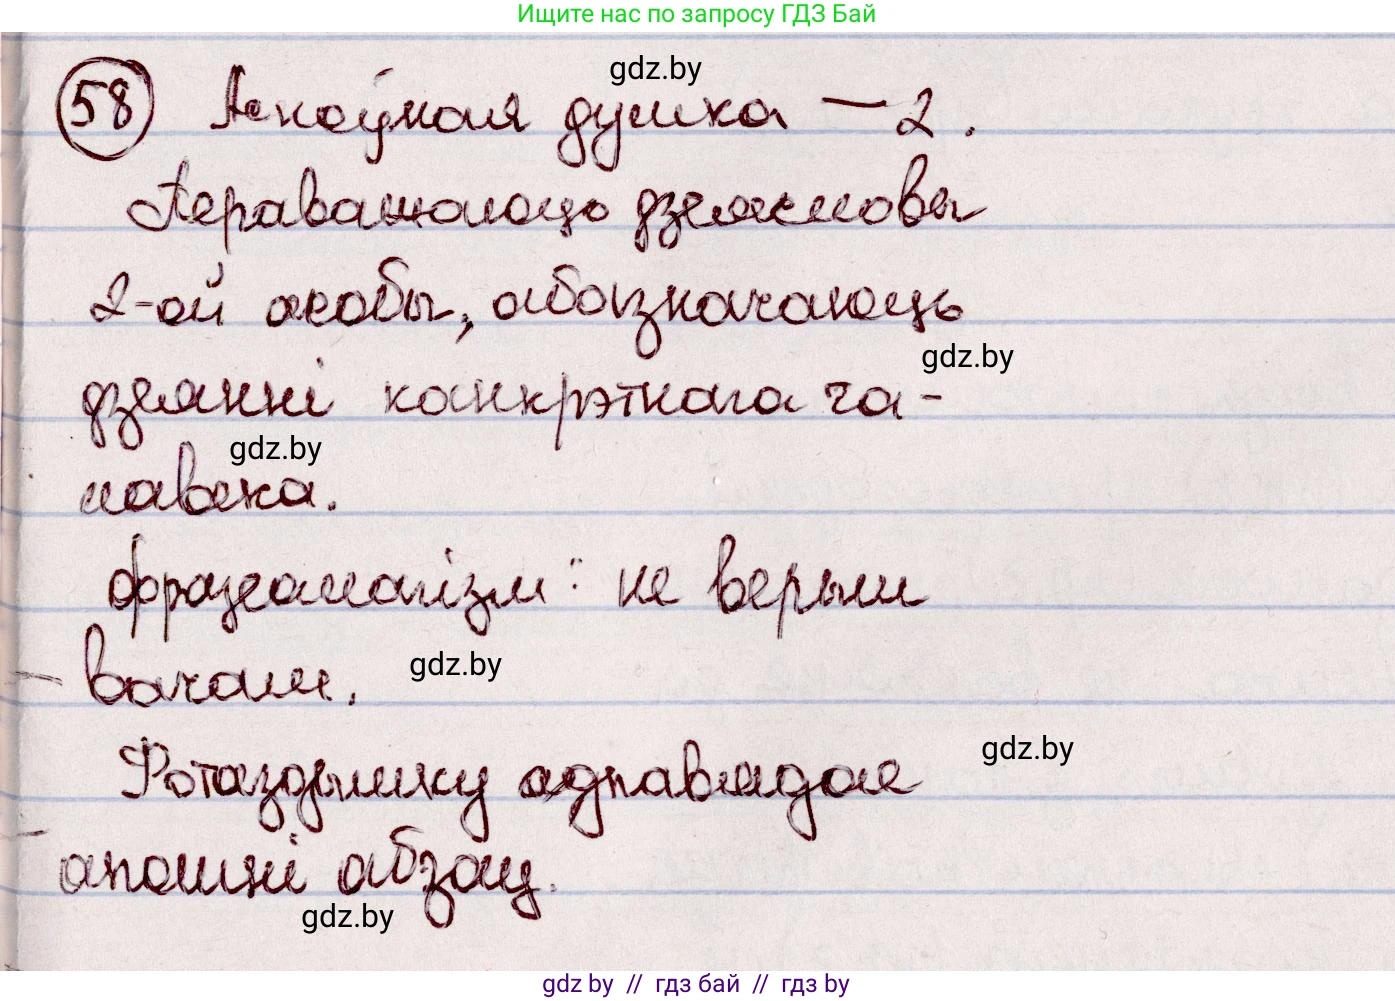 Ищите нас по запросу ГДЗ Бай
gdz.by
58 Асноўная думка — 2.
Пераважаюць дзеясловы
2-ой асобы, абазначаюць
gdz.by
дзеянні канкрэтнага ча-
gdz.by
лавека.
фразеалагізм: не верыш
вачам.
gdz.by
gdz.by
Фотаздымку адпавядае
апошні абзац.
gdz.by
gdz by // гдз бай // gdz by